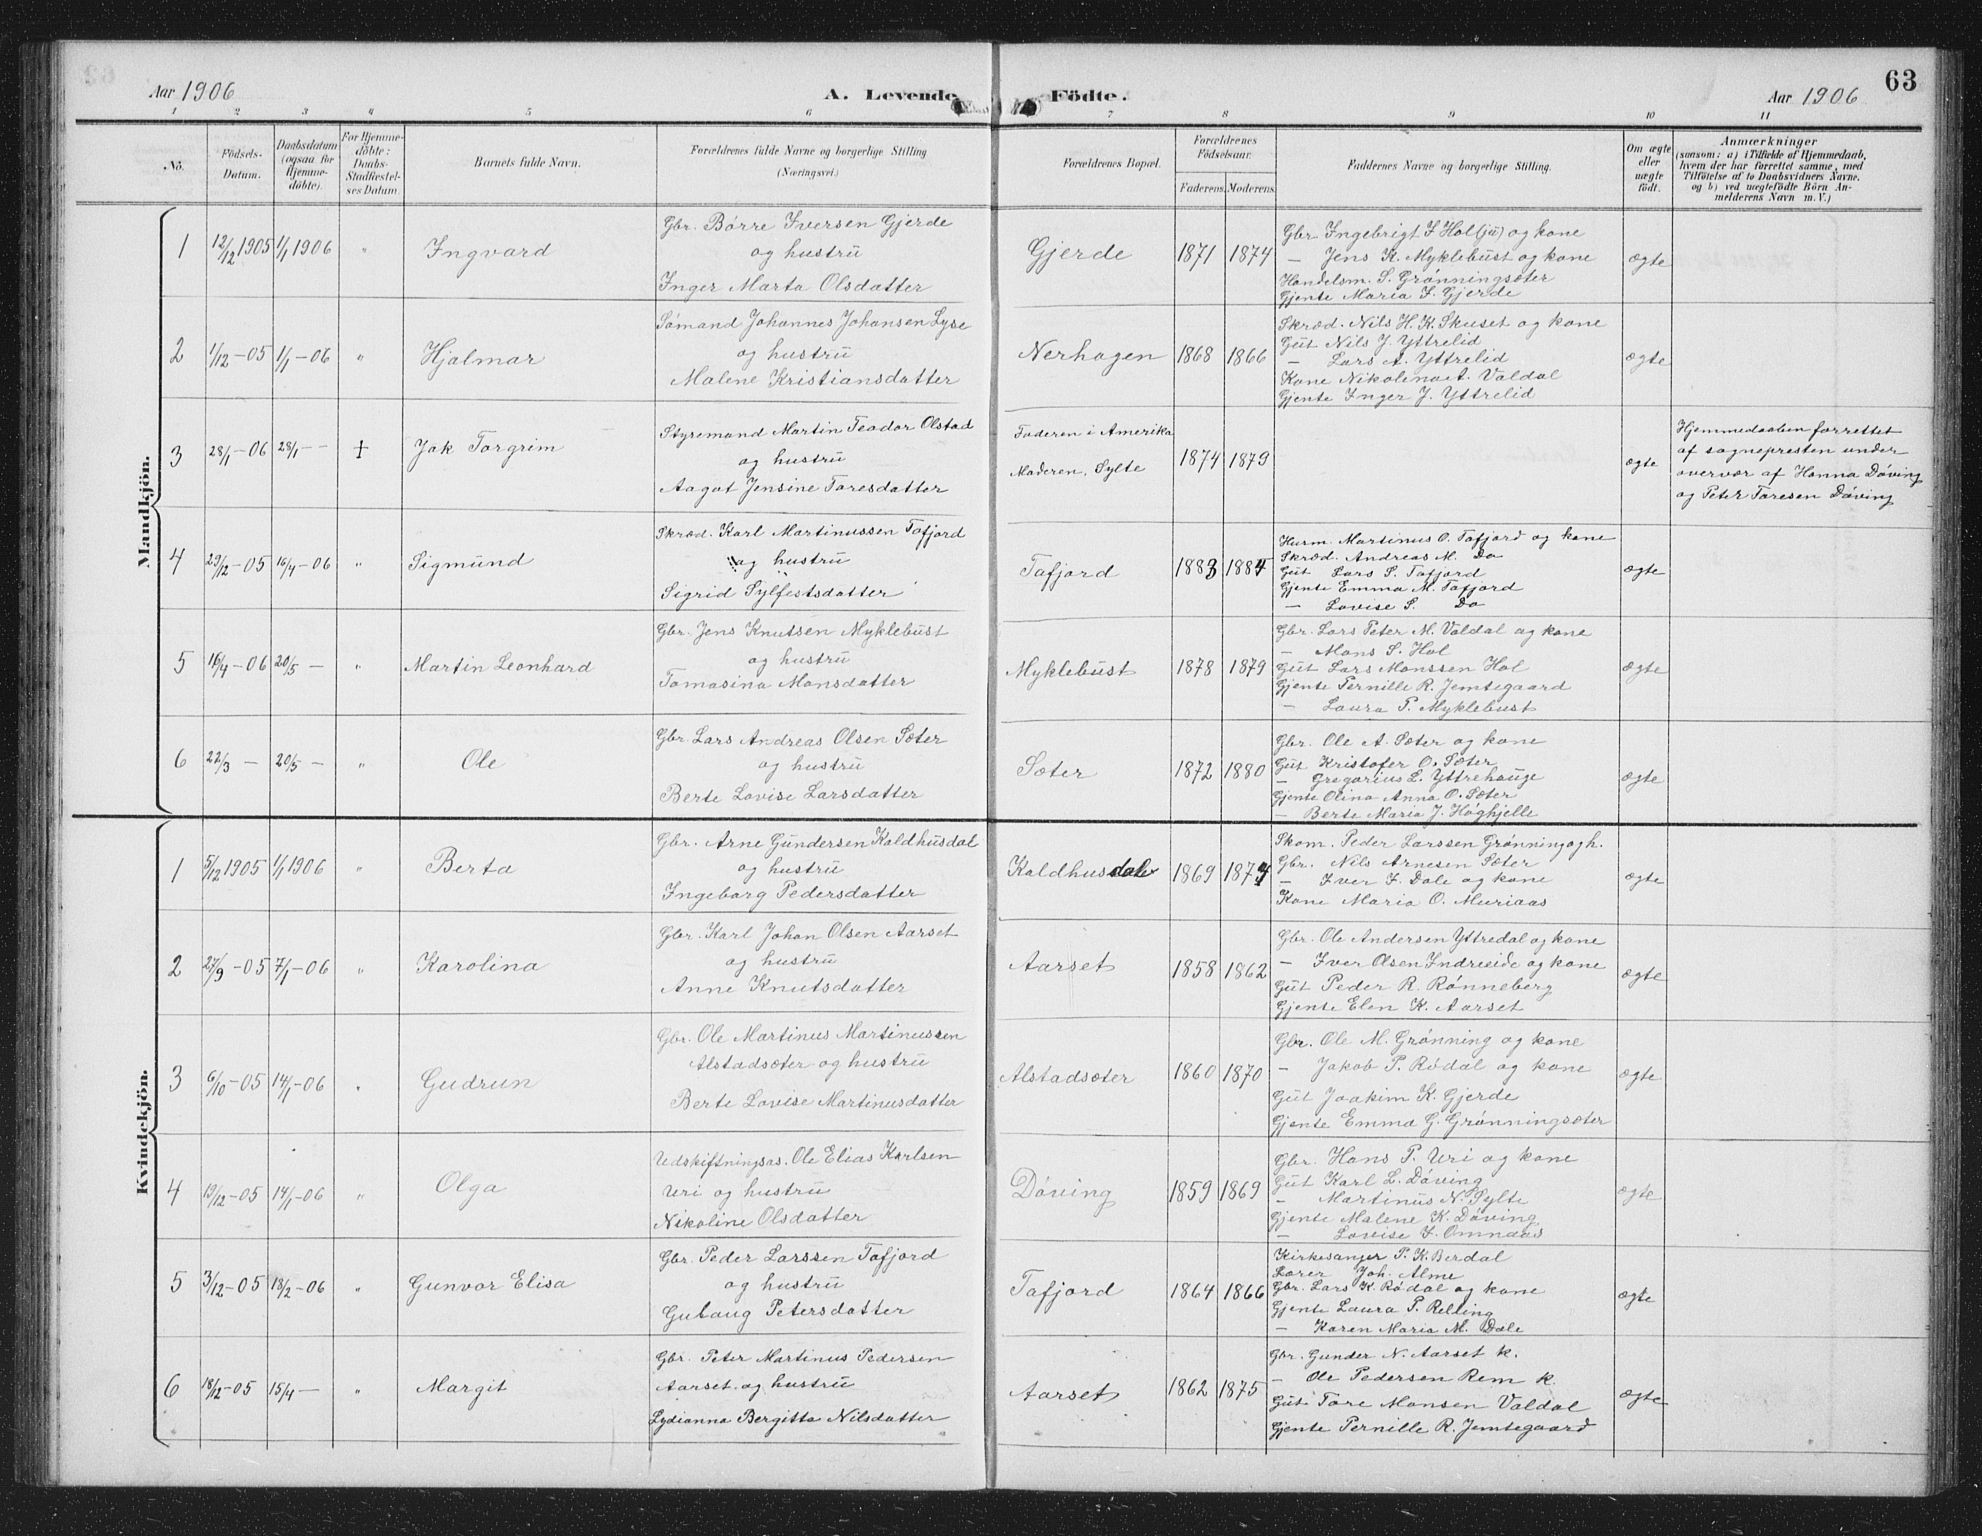 63
Aar 1906
A. Levende Födte.
Aar 1906
1 2 3 4 5 6 7 8 9 10 11
No.
Födsels-Datum.
Daabsdatum (ogsaa for Hjemme-döbte).
For Hjemme-döbte: Daabs-Stadfæstel-ses Datum.
Barnets fulde Navn.
Forældrenes fulde Navne og borgerlige Stilling
(Næringsvei.)
Forældrenes Bopæl.
Forældrenes Födselsaar.
Faderens. Moderens.
Faddernes Navne og borgerlige Stilling.
Om ægte eller uægte födt.
Anmærkninger
(saasom: a) i Tilfælde af Hjemmedaab,
hvem der har forrettet samme, med
Tilföielse af to Daabsvidners Navne,
og b) ved uægtefödte Börn An-
melderens Navn m. V.)
Mandkjön.
1 12/12 1905 1/1 1906 " Ingvard
Gbr. Börre Iversen Gjerde
og hustru
Inger Marta Olsdatter
Gjerde 1871 1874
Gbr. Ingebrigt I Hol (ju) og kone
— Jens K. Myklebust og kone
Handelsm. S. Grönningsæter
Gjente Maria I. Gjerde
ægte
2 1/12 -05 1/1 -06 " Hjalmar
Sömand Johannes Johansen Lyse
og hustru
Malene Kristiansdatter
Nerhagen 1868 1866
Skræd. Nils H. K. Skuset og kone
Gut Nils J. Yttrelid
— Lars A. Yttrelid
Kone Nikolina A. Valdal
Gjente Inger J. Yttrelid
ægte
3 28/1 -06 28/1 - - + Jak Torgrim
Styremand Martin Teodor Olstad
og hustru
Aagot Jensine Toresdatter
Faderen i Amerika
Moderen, Sylte
1874 1879
ægte
Hjemmedaaben forrettet
af sognepresten under
overvær af Hanna Döving
og Peter Toresen Döving
4 29/12 -05 16/4 -06 " Sigmund
Skræd. Karl Martinussen Tafjord
og hustru
Sigrid Sylfestsdatter
Tafjord 1883 1884
Husm. Martinus O. Tafjord og kone
Skræd. Andreas M. Do
Gut Lars S. Tafjord
Gjente Emma M. Tafjord
— Lovise S. Do
ægte
5 16/4 -06 20/5 — " Martin Leonhard
Gbr. Jens Knutsen Myklebust
og hustru
Tomasina Monsdatter
Myklebust 1878 1879
Gbr. Lars Peter M. Valdal og kone
— Mons S. Hol
Gut Lars Monssen Hol
Gjente Pernille R. Jemtegaard
— Laura P. Myklebust
ægte
6 22/3 — 20/5 — " Ole
Gbr Lars Andreas Olsen Sæter
og hustru
Berte Lovise Larsdatter
Sæter 1872 1880
Gbr. Ole A. Sæter og kone
Gut Kristofer O. Sæter
— Gregorius L. Yttrehauge
Gjente Olina Anna O. Sæter
— Berte Maria J. Höghjelle
ægte
Kvindekjön.
1 5/12 1905 1/1 1906 " Berta
Gbr. Arne Gundersen Kaldhusdal
og hustru
Ingeborg Pedersdatter
Kaldhusdale 1869 1874
Skom. Peder Larssen Grönning ogh.
Gbr. Nils Arnesen Sæter
— Iver I. Dale og kone
Kone Maria O. Muriaas
ægte
2 27/9 -05 7/1 -06 " Karolina
Gbr. Karl Johan Olsen Aarset
og hustru
Anne Knutsdatter
Aarset 1858 1862
Gbr. Ole Andersen Yttredal og kone
— Iver Olsen Indreeide og kone
Gut Peder R. Rönneberg
Gjente Elen K. Aarset
ægte
3 6/10 -05 14/1 -06 " Gudrun
Gbr. Ole Martinus Martinussen
Alstadsæter og hustru
Berte Lovise Martinusdatter
Alstadsæter 1860 1870
Gbr. Ole M. Grönning og kone
— Jakob P. Rödal og kone
Gut Joakim K. Gjerde
Gjente Emma G. Grönningsæter
ægte
4 19/12 -05 14/1 -06 " Olga
Udskiftningsas. Ole Elias Karlsen
Uri og hustru
Nikoline Olsdatter
Döving 1859 1869
Gbr. Hans P. Uri og kone
Gut Karl L. Döving
— Martinus N. Sylte
Gjente Malene K. Döving
— Lovise I. Omnaas
ægte
5 3/12 -05 18/2 -06 " Gunvor Elisa
Gbr. Peder Larssen Tafjord
og hustru
Gulaug Petersdatter
Tafjord 1864 1866
Kirkesanger P. K. Berdal
Lærer Joh. Alme
Gbr. Lars K. Rödal og kone
Gjente Laura P. Relling
— Karen Maria M. Dale
ægte
6 18/12 -05 15/4 — " Margit
Gbr. Peter Martinus Pedersen
Aarset og hustru
Lydianna Bergitta Nilsdatter
Aarset 1862 1875
Gbr. Gunder N. Aarset k.
— Ole Pedersen Rem k.
Gut Tore Monsen Valdal
Gjente Pernille R. Jemtegaard
ægte